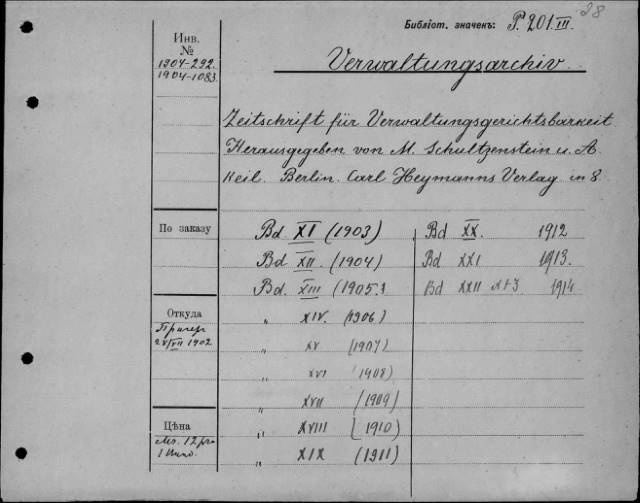 28
Библіот. значекъ: P. 201 III.
Инв.
№
1904-292.
1904-1083
Verwaltungsarchiv.
Zeitschrift für Verwaltungsgerichtsbarkeit
Herausgegeben von M. Schultzenstein u. A.
Keil. Berlin. Carl Heymanns Verlag in 8.
По заказу
Bd XI (1903)
Bd XII. (1904)
Bd. XIII (1905.)
" XIV. (1906)
" XV (1907)
" XVI (1908)
" XVII (1909)
" XVIII (1910)
" XIX (1911)
Bd XX. 1912
Bd XXI 1913.
Bd XXII 1914
Откуда
VII 1902
Цѣна
12
1